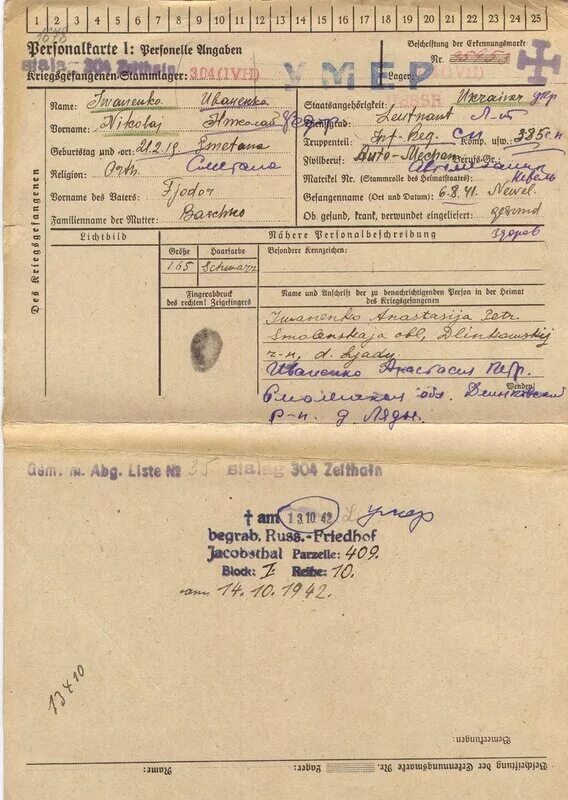 1 2 3 4 5 6 7 8 9 10 11 12 13 14 15 16 17 18 19 20 21 22 23 24 25
Personalkarte I: Personelle Angaben
Beschriftung der Erkennungsmarke
Nr. 25953
304 Zeithain
Kriegsgefangenen-Stammlager: 304 (IV H)
УМЕР
Lager: (IV H)
Des Kriegsgefangenen
Name: Iwanenko Иваненко
Staatsangehörigkeit: UdSSR Ukrainer укр
Vorname: Nikolaj Николай
Dienstgrad: Leutnant Л-т
Truppenteil: Inf. Reg. СП Komp. usw. 335 сп
Geburtstag und -ort: 21.2.19. Smetana
Сметана
Zivilberuf: Auto-Mechan Berufs-Gr.:
Religion: Orth.
Matrikel Nr. (Stammrolle des Heimatstaates): Невель
Vorname des Vaters: Fjodor
Gefangennahme (Ort und Datum): 6.8.41. Newel
Familienname der Mutter: Baschko
Ob gesund, krank, verwundet eingeliefert: gesund
здоров
Lichtbild
Nähere Personalbeschreibung
Größe Haarfarbe
Besondere Kennzeichen:
165 Schwarz
Fingerabdruck
des rechten! Zeigefingers
Name und Anschrift der zu benachrichtigenden Person in der Heimat
des Kriegsgefangenen
Iwanenko Anastasija Petr.
Smolenskaja obl, Dlinkowskij
r-n, d. Ljady.
Иваненко Анастасия Петр.
Wenden!
Смоленская обл. Длинковский
р-н. д. Ляды.
Gem. m. Abg. Liste № 35 Stalag 304 Zeithain
† am 13.10.42 Умер
begrab. Russ.-Friedhof
Jacobsthal Parzelle: 409.
Block: I Reihe: 10.
am 14.10.1942.
13410
Bemerkungen:
Beschriftung der Erkennungsmarke Nr.
Lager:
Name: